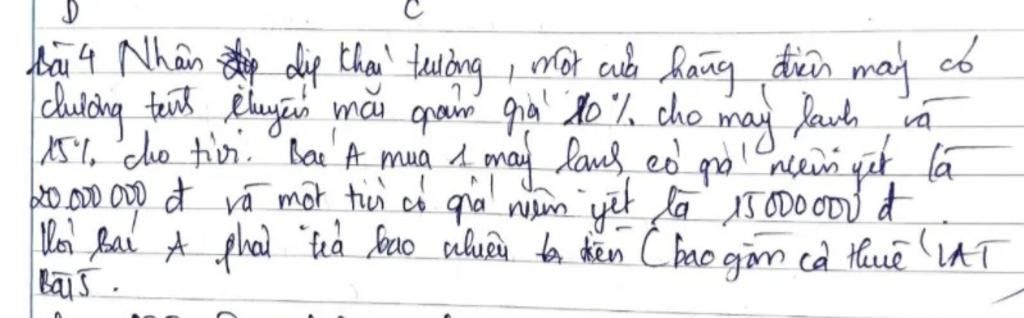 D C
Bài 4 Nhân dịp khai trương, một cửa hàng điện máy có
chương trình khuyến mãi giảm giá 10% cho máy lạnh và
15% cho tivi. Bác A mua 1 máy lạnh có giá niêm yết là
20.000 000 đ và một tivi có giá niêm yết là 15 000 000 đ.
Hỏi Bác A phải trả bao nhiêu tiền (bao gồm cả thuế VAT
Bài 5.